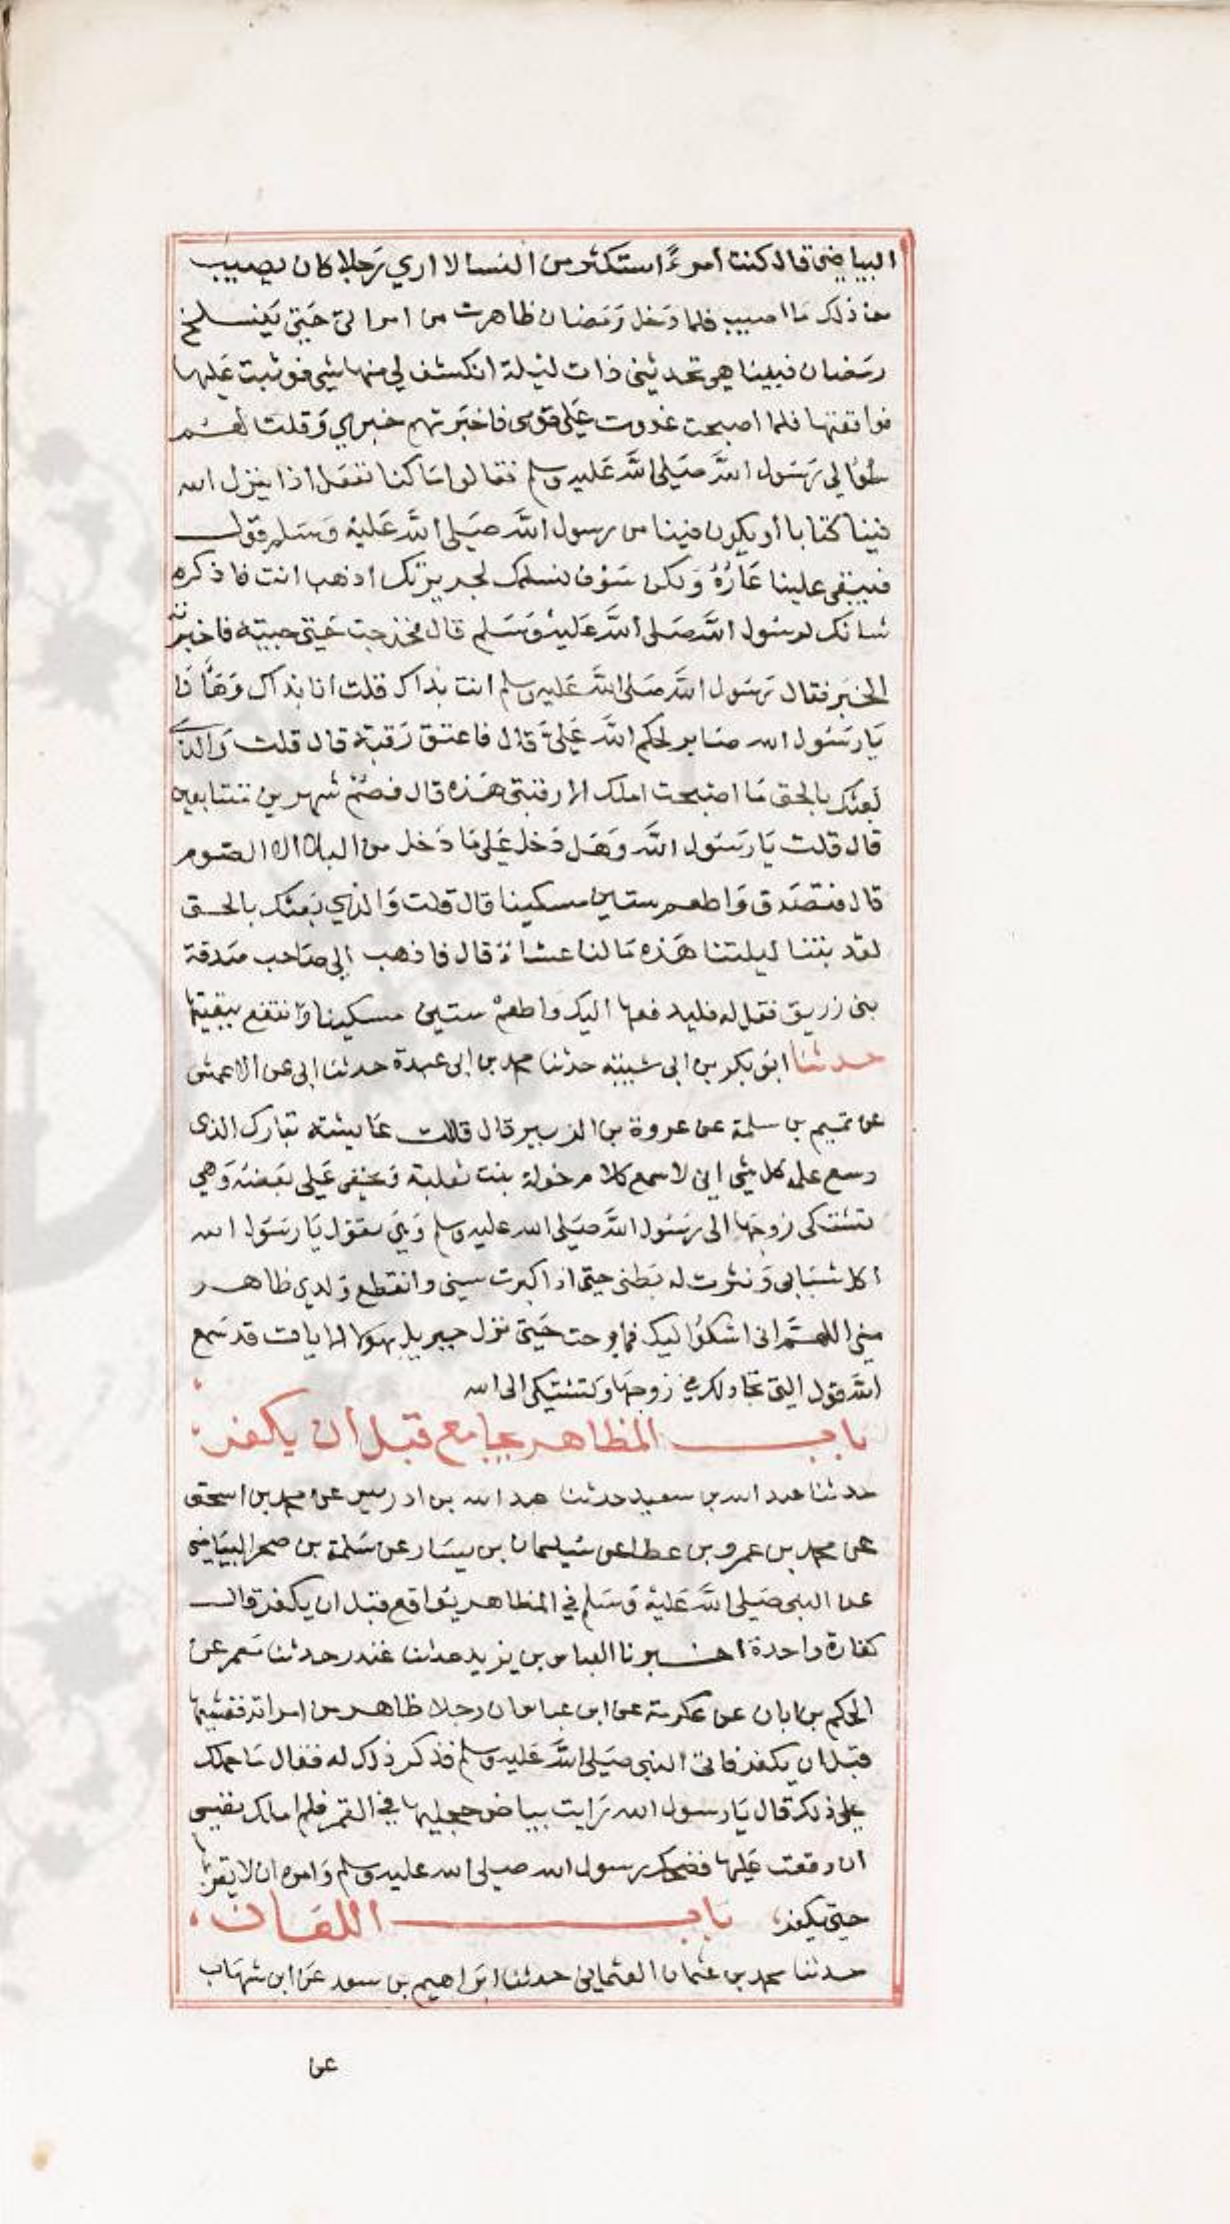 البياضى قال كنت امرءً استكثر من النسا لا اري رَجلا كان يصيب
من ذلك مَا اصيب فلما دَخل رَمَضان ظاهرت من امراتى حَتي يَنسلخ
رمَضان فبينا هي تحدثني ذات ليلة انكشف لي منها شي فوثبت عَليها
فواقعتها فلما اصبحت غدوت عَلي قومى فاخبَرتهم خبري وَقلت لهم
سَلوا لي رَسَول اللَّه صَلي اللَّه عَليه وسلم فقالوا مَا كنا نفعَل اذا ينزل الله
فينا كتابا أو يكون فينا من رسول اللَّه صَلي اللَّه عَليهْ وَسَلم قول
فيبقى علينا عَارُهُ وَلكن سَوْف نسلمك لجريرتك اذهب انت فاذكره
شانك لرسَول اللَّه صَلي اللَّه عَليهْ وَسَلم قال فخرجت حَتي جيته فاخبرته
الخبَر فقال رَسَول اللَّه صَلي اللَّه عَليه وسلم انت بذاك قلت انا بذاك وَهَاَّ نَا
يَا رسَول الله صَابر لحكم اللَّه عَليَّ قال فاعتق رَقبة قال قلت وَالذي
بَعثك بالحق مَا اصْبحت املك الا رقبتي هَذه قال فصُمْ شهرين متتابعين
قال قلت يَا رسَول اللَّه وَهَل دَخل عَلي مَا دَخل من البلا الا الصّوم
قال فتصَدق وَاطعم ستين مسكينا قال قلت وَالذي بَعثك بالحق
لقد بتنا ليلتنا هَذه مَالنا عشاة قال فاذهب إلي صَاحب صَدقة
بنى زريق فقل له فليدفعها اليك وَاطعمْ ستين مسكينا وَانتفع ببقيتها
حدثنا ابَو بكر بن ابى شيبته حدثنا محمد بن ابى عبدة حدثنا ابى عن الاعمش
عن تميم بن سلمة عن عروة بن الزبير قال قالت عَايشته تبارك الذى
وسع علمه كل شي اني لاسمع كلام خولة بنت ثعلبة وَيخفى عَلي بَعضهُ وَهي
تشتكى زوجهَا الى رَسُول اللَّه صَلي الله عليه وسلم وَهي تقول يَا رسَول الله
اكل شبَابى وَنثرت له بَطنى حتى اذا كبرت سيني وانقطع وَلدي ظاهر
مني اللهمَّ انى اشكوُ اليك فما برحت حَتي نزل جبريل بهولا الايات قد سَمع
اللَّه قول التي تجادلك في زوجهَا وَتشتكى الى الله
باب المظاهر يجامع قبل أن يكفر
حدثنا عبد الله بن سعيد حدثنا عبد الله بن ادريس عن محمد بن اسحق
عن محمد بن عمرو بن عطا عن سُليمان بن يسَار عن سَلمة بن صخر البيَاضى
عن النبى صَلي اللَّه عَليهْ وَسَلم في المظاهر يوَاقع قبل ان يكفر قال
كفارة واحدة اخبرنا العباس بن يزيد حدثنا غندر حدثنا مَعمر عن
الحكم بن ابان عن عكرمة عن ابن عباس ان رجلا ظاهر من امراته فغشيها
قبَل ان يكفر فاتى النبى صَلي اللَّه عَليه وسلم فذكر ذلك له فقال مَا حملك
علي ذلك قال يَا رسول الله رَايت بياض حجليها في القمر فلم املك نفسي
ان وقعت عَليها فضحك رسول الله صلي الله عليه وسلم وَامره ان لا يقربها
حتى يكفر باب اللعَان
حدثنا محمد بن عثمان العثمانى حدثنا ابرَاهيم بن سعد عَن ابن شهَاب
عن